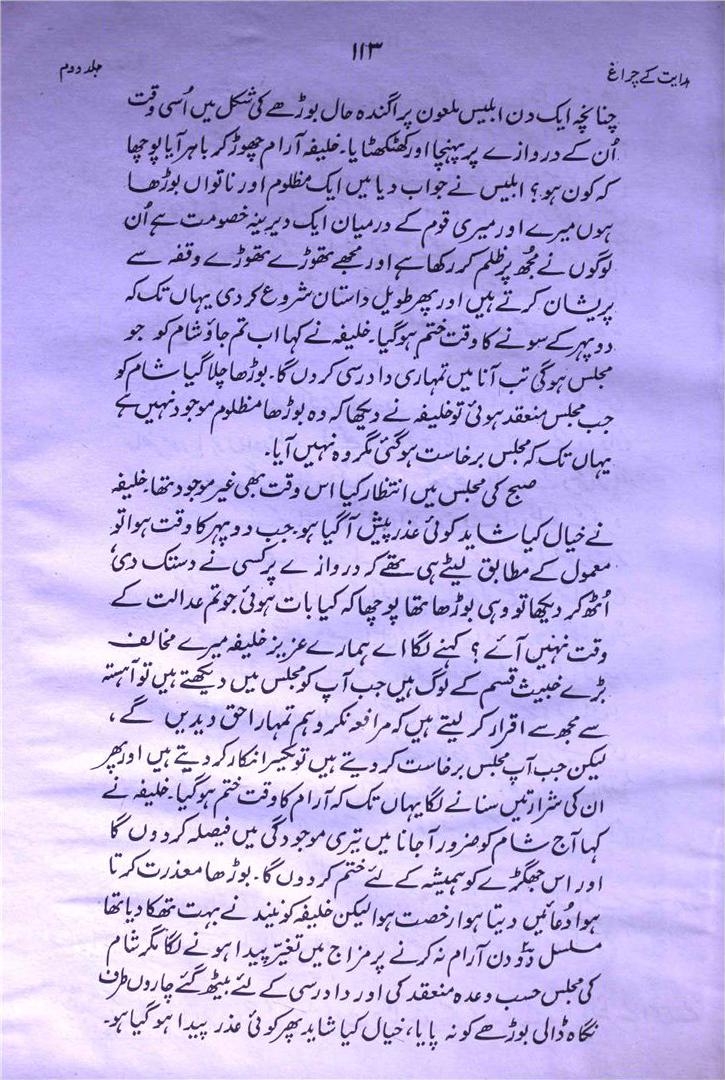 ۱۱۳
ہدایت کے چراغ
جلد دوم
چنانچہ ایک دن ابلیس ملعون پراگندہ حال بوڑھے کی شکل میں اُسی وقت
اُن کے دروازے پر پہنچا اور کھٹکھٹایا۔ خلیفہ آرام چھوڑ کر باہر آیا پوچھا
کہ کون ہو؟ ابلیس نے جواب دیا میں ایک مظلوم اور ناتواں بوڑھا
ہوں میرے اور میری قوم کے درمیان ایک دیرینہ خصومت ہے اُن
لوگوں نے مجھ پر ظلم کر رکھا ہے اور مجھے تھوڑے تھوڑے وقفہ سے
پریشان کرتے ہیں اور پھر طویل داستان شروع کر دی یہاں تک کہ
دوپہر کے سونے کا وقت ختم ہو گیا۔ خلیفہ نے کہا اب تم جاؤ شام کو جو
مجلس ہوگی تب آنا میں تمہاری دادرسی کر دں گا۔ بوڑھا چلا گیا شام کو
جب مجلس منعقد ہوئی تو خلیفہ نے دیکھا کہ وہ بوڑھا مظلوم موجود نہیں ہے
یہاں تک کہ مجلس برخاست ہو گئی مگر وہ نہیں آیا۔
صبح کی مجلس میں انتظار کیا اس وقت بھی غیر موجود تھا۔ خلیفہ
نے خیال کیا شاید کوئی عذر پیش آ گیا ہو۔ جب دوپہر کا وقت ہوا تو
معمول کے مطابق لیٹے ہی تھے کہ دروازے پر کسی نے دستک دی،
اُٹھ کر دیکھا تو وہی بوڑھا تھا پوچھا کہ کیا بات ہوئی جو تم عدالت کے
وقت نہیں آئے؟ کہنے لگا اے ہمارے عزیز خلیفہ میرے مخالف
بڑے خبیث قسم کے لوگ ہیں جب آپ کو مجلس میں دیکھتے ہیں تو آہستہ
سے مجھ سے اقرار کر لیتے ہیں کہ مرافعہ نکر و ہم تمہارا حق دیدیں گے،
لیکن جب آپ مجلس برخاست کر دیتے ہیں تو یکسر انکار کر دیتے ہیں اور پھر
ان کی شرارتیں سنانے لگا یہاں تک کہ آرام کا وقت ختم ہو گیا۔ خلیفہ نے
کہا آج شام کو ضرور آ جانا میں تیری موجودگی میں فیصلہ کر دوں گا
اور اس جھگڑے کو ہمیشہ کے لئے ختم کر دوں گا۔ بوڑھا معذرت کرتا
ہوا دُعائیں دیتا ہوا رخصت ہوا لیکن خلیفہ کو نیند نے بہت تھکا دیا تھا
مسلسل دُو دن آرام نہ کرنے پر مزاج میں تغیّر پیدا ہونے لگا مگر شام
کی مجلس حسب وعدہ منعقد کی اور دادرسی کے لئے بیٹھ گئے چاروں طرف
نگاہ ڈالی بوڑھے کو نہ پایا، خیال کیا شاید پھر کوئی عذر پیدا ہو گیا ہو۔